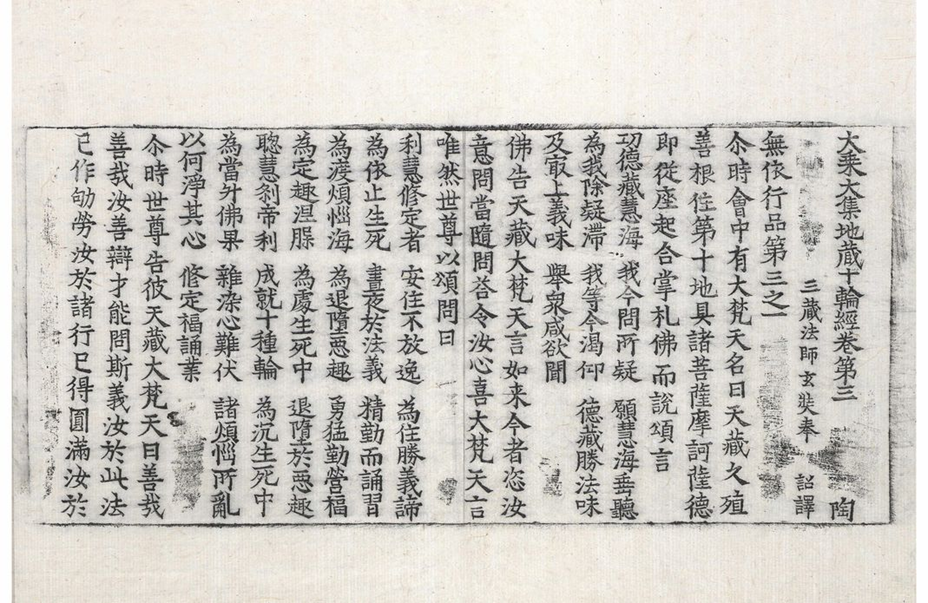 大乘大集地蔵十輪經卷第三 陶
三蔵法師玄奘奉 詔譯
無依行品第三之一
尒時會中有大梵天名曰天藏久殖
善根住第十地具諸菩薩摩訶薩德
即從座起合掌礼佛而說頌言
㓛德藏慧海 我今問所疑 願慧海垂聽
為我除疑滯 我等今渴仰 德藏勝法味
及㝡上義味 舉衆咸欲聞
佛告天藏大梵天言如来今者恣汝
意問當隨問荅令汝心喜大梵天言
唯然世尊以頌問曰
利慧修定者 安住不放逸 為住勝義諦
為依止生死 晝夜於法義 精勤而誦習
為渡煩惱海 為退墮惡趣 勇猛勤營福
為定趣涅槃 為處生死中 退墮於惡趣
聡慧剎帝利 成就十種輪 為沉生死中
為當升佛果 雜染心難伏 諸煩惱所亂
以何淨其心 修定福誦業
尒時世尊告彼天藏大梵天曰善哉
善哉汝善辯才能問斯義汝於此法
已作劬勞汝於諸行已得圓滿汝於